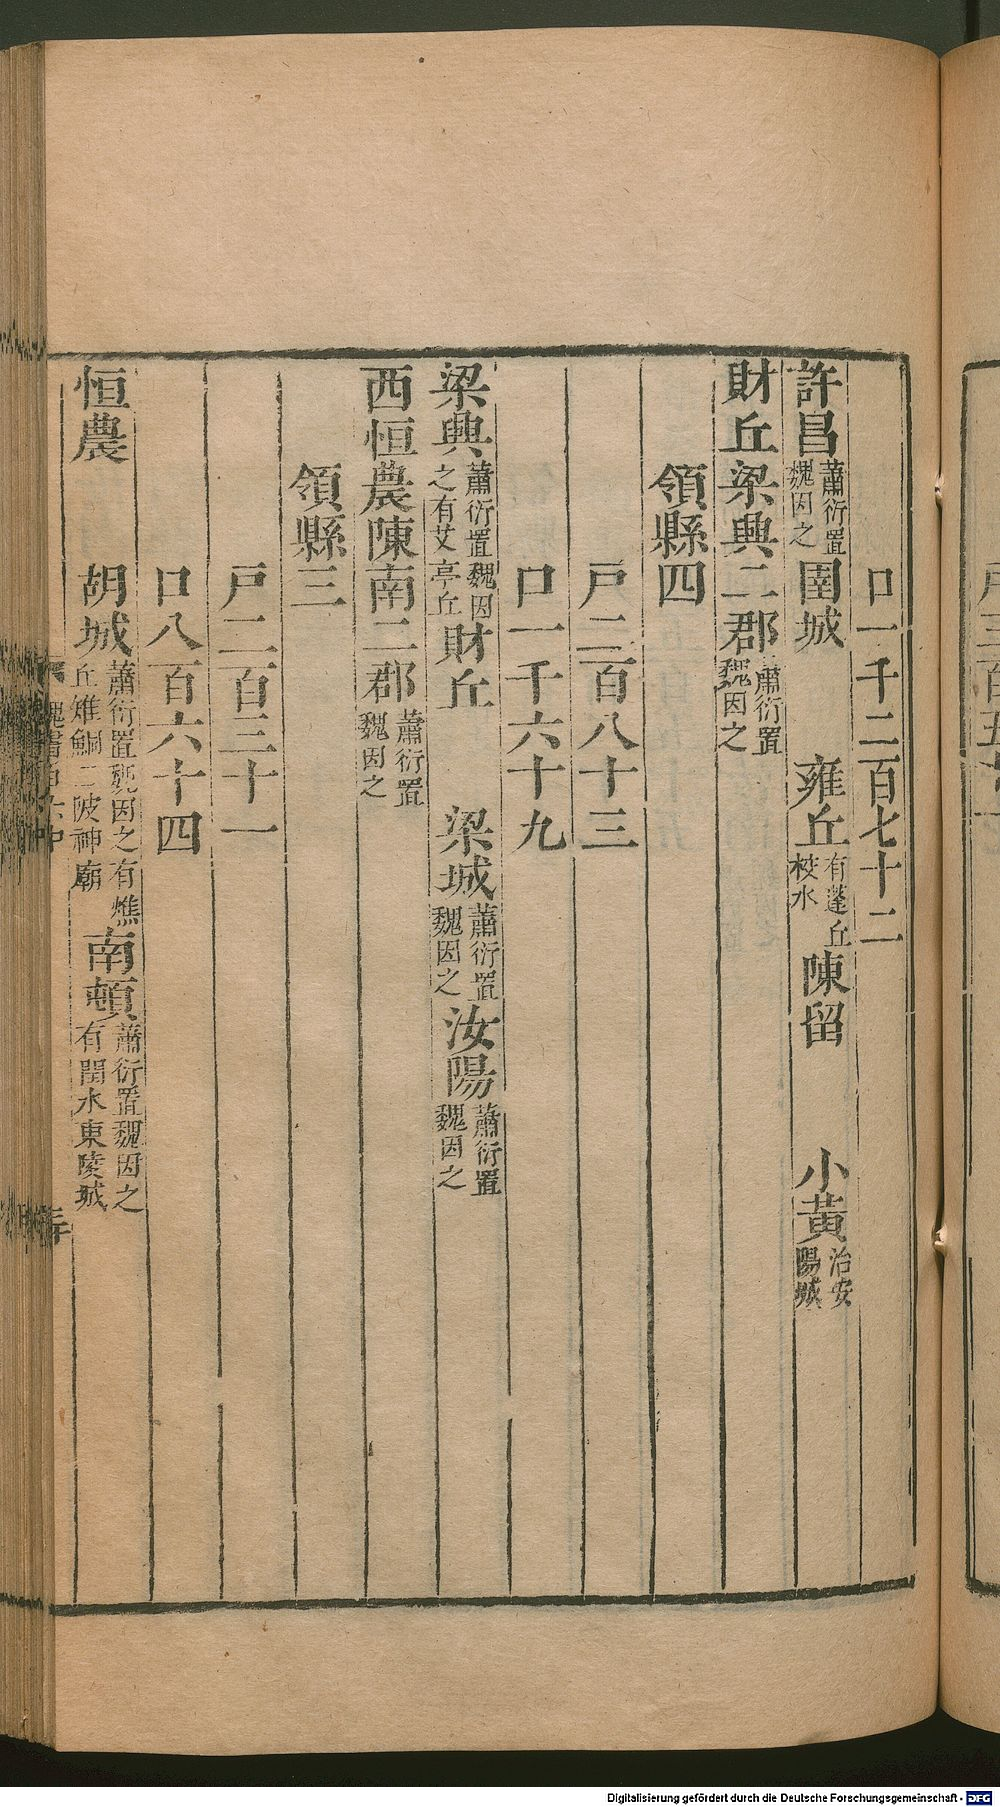 口一千二百七十二
許昌蕭衍置魏因之圉城雍丘有蓬丘校水陳留小黃治安陽城
財丘梁興二郡蕭衍置魏因之
領縣四
戶二百八十三
口一千六十九
梁興蕭衍置魏因之有艾亭丘財丘梁城蕭衍置魏因之汝陽蕭衍置魏因之
西恒農陳南二郡蕭衍置魏因之
領縣三
戶二百三十一
口八百六十四
恒農胡城蕭衍置魏因之有燋丘雉鮦二陂神廟南頓蕭衍置魏因之有閏水東陵城
Digitalisierung gefördert durch die Deutsche Forschungsgemeinschaft - DFG